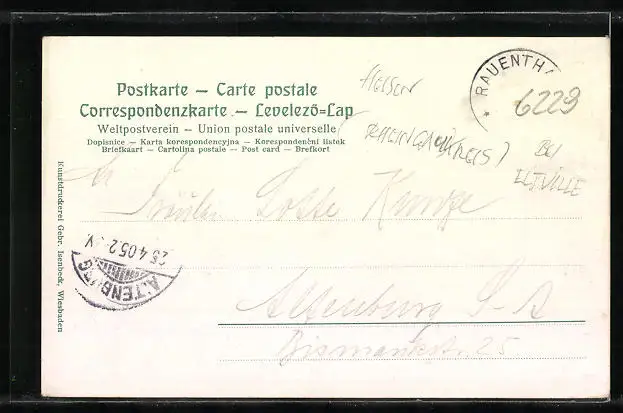 Postkarte — Carte postale
Correspondenzkarte — Levelező-Lap
Weltpostverein — Union postale universelle
Dopisnice — Karta korespondencyjna — Korespondenční lístek
Briefkaart — Cartolina postale — Post card — Brefkort
HESSEN
RHEINGAU(KREIS)
* RAUENTHA
6229
BEI
ELTVILLE
Kunstdruckerei Gebr. Isenbeck, Wiesbaden
An
Fräulein Lotte Kunze
ALTENBURG
25.4.05.2-3V.
Altenburg S-A
Bismarckstr. 25